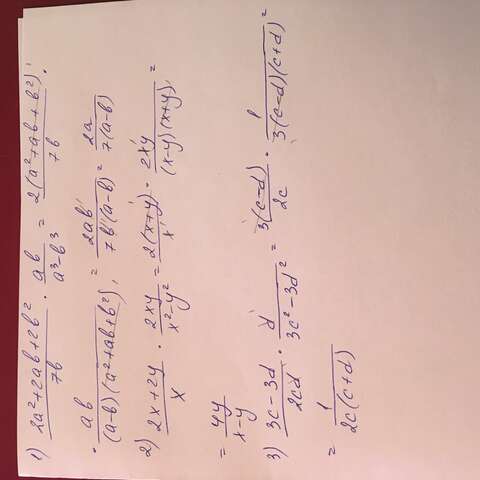 1) (2a²+2ab+2b²)/7b · ab/(a³-b³) = 2(a²+ab+b²)/7b ·
· ab/((a-b)(a²+ab+b²)) = 2ab/(7b(a-b)) = 2a/(7(a-b))
2) (2x+2y)/x · 2xy/(x²-y²) = 2(x+y)/x · 2xy/((x-y)(x+y)) =
= 4y/(x-y)
3) (3c-3d)/2cd · d/(3c²-3d²) = 3(c-d)/2c · 1/(3(c-d)(c+d)) =
= 1/(2c(c+d))